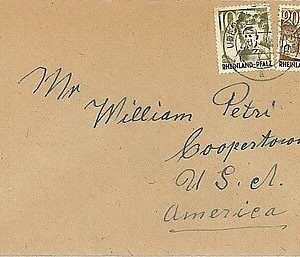 10
20
RHEINLAND-PFALZ
RHEINLAN
Mr
William Petri
Coopertown
U.S.A.
America